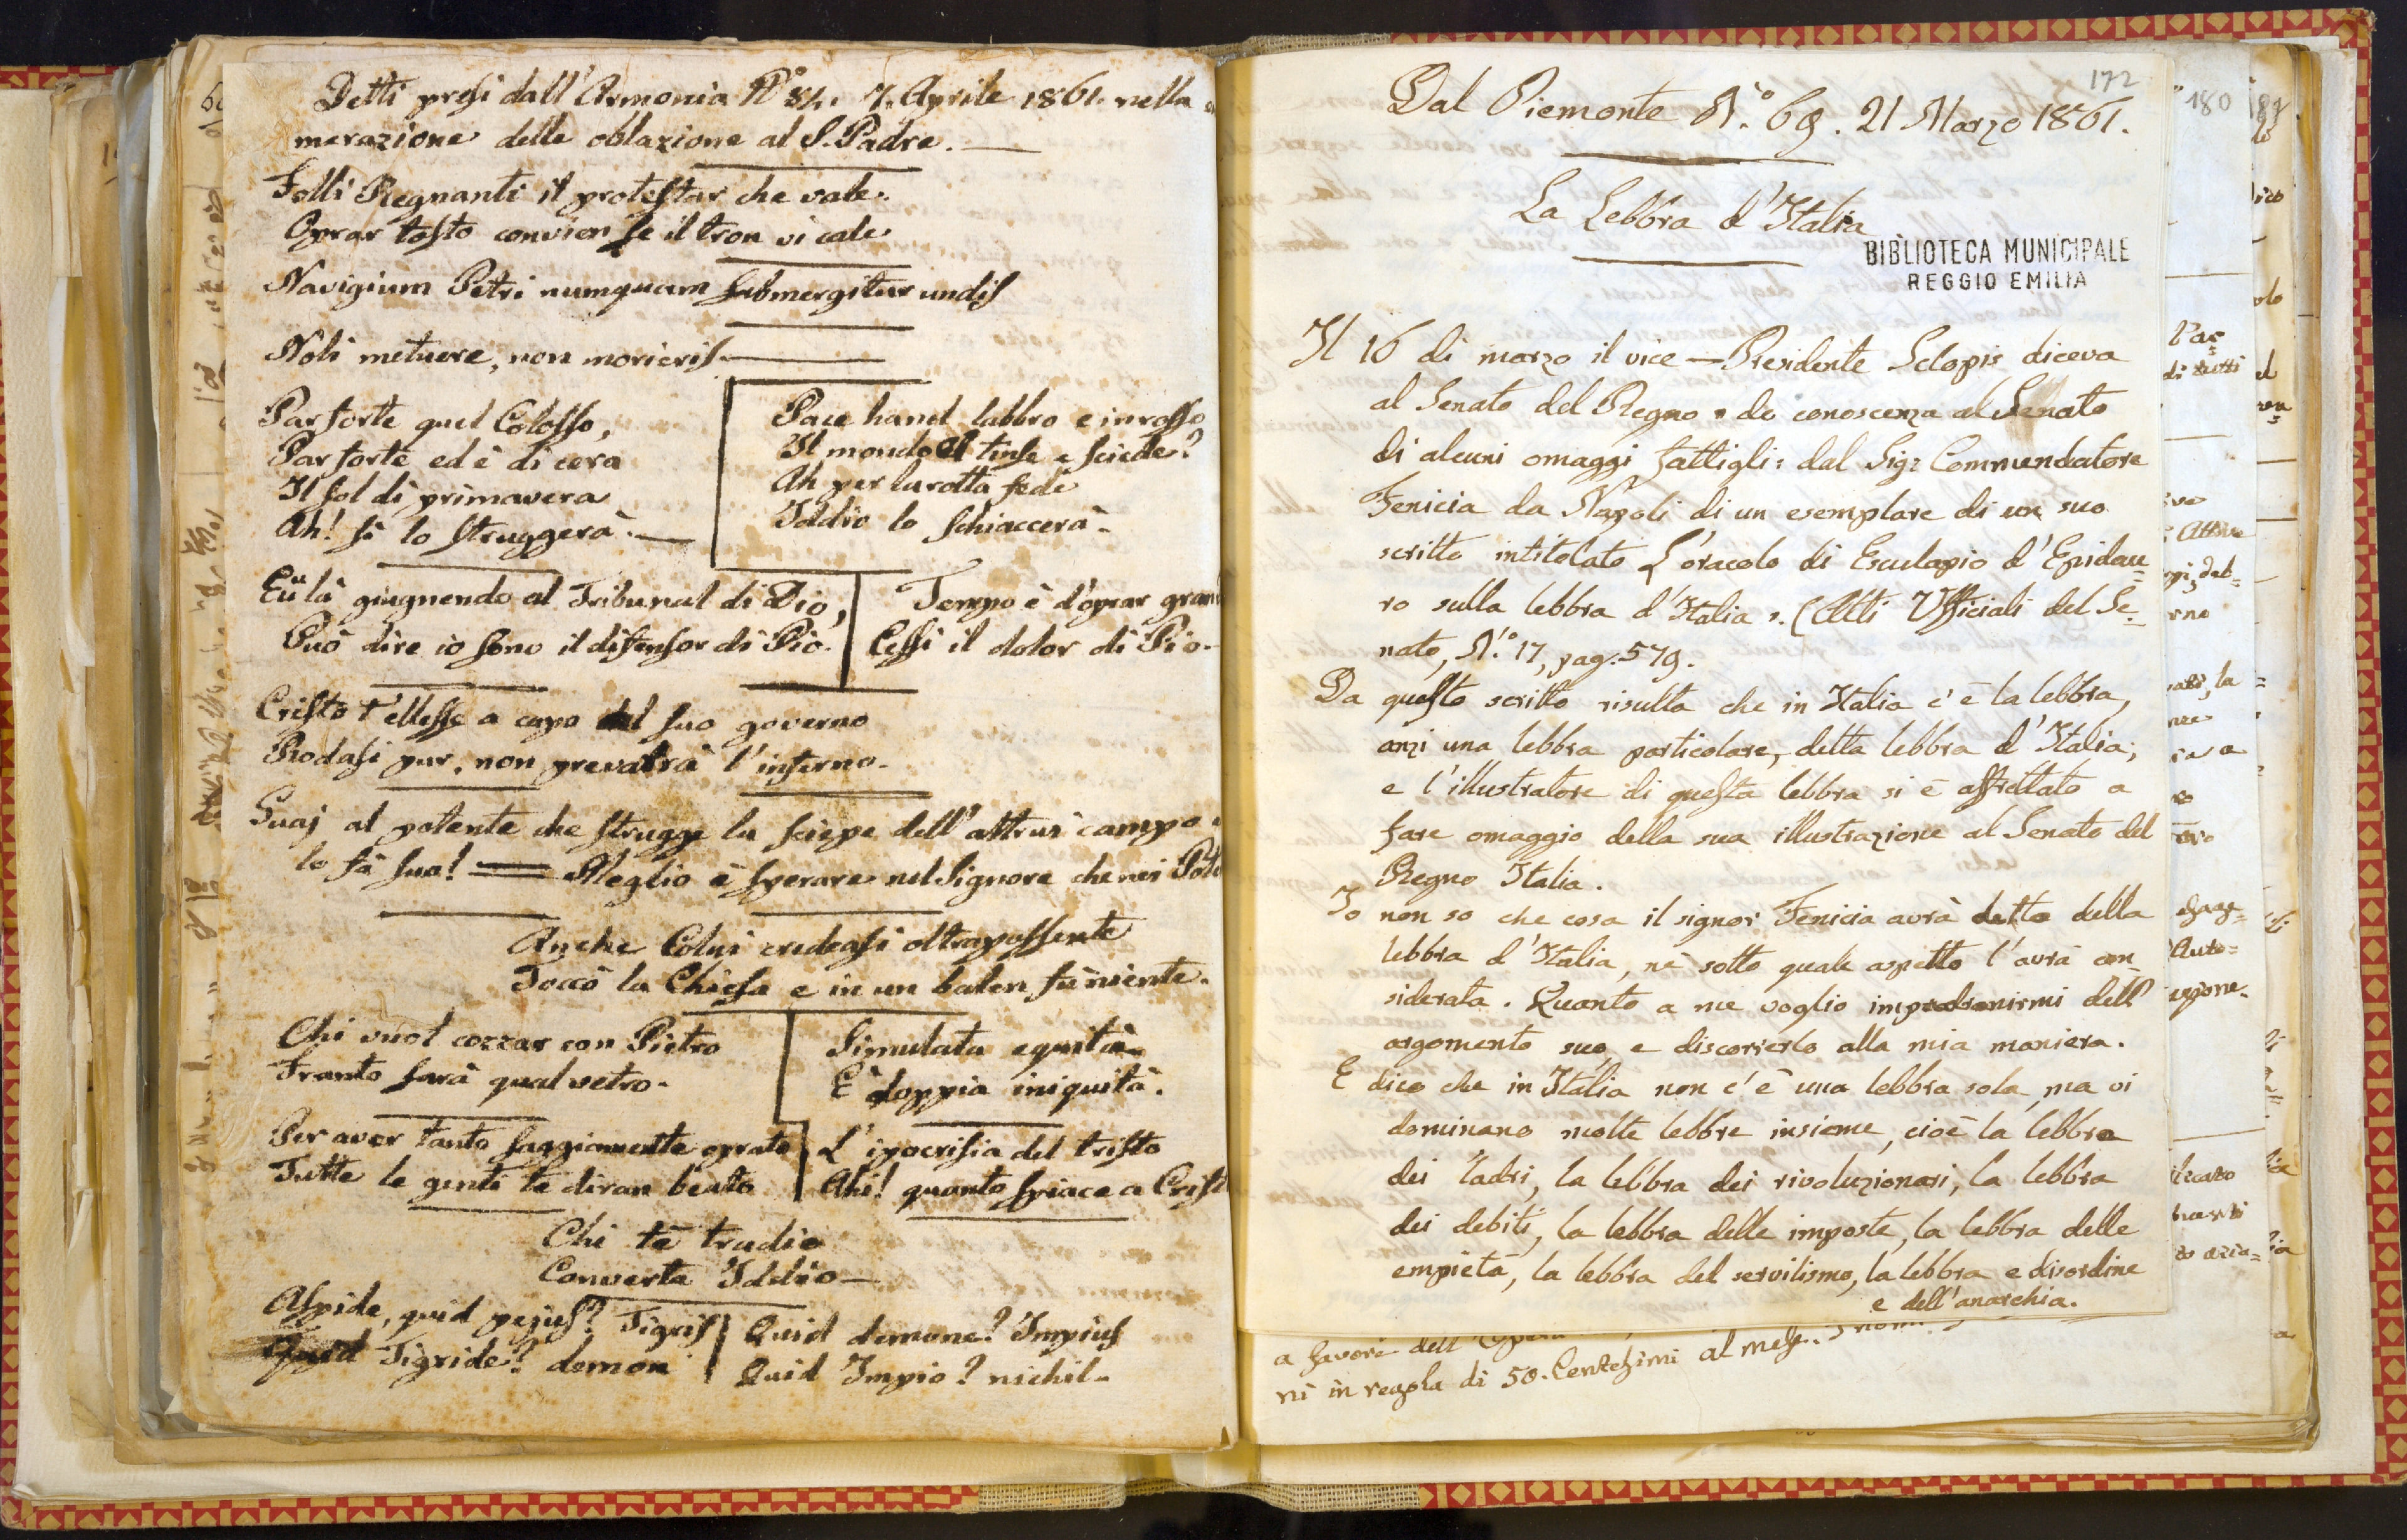 Detti presi dall'Armonia N° 84. 7. Aprile 1861. nella
merazione delle oblazione al S. Padre.
Folli Regnanti il protestar che vale.
Oprar tosto convien se il tron vi cale
Navigium Petri numquam submergitur undis
Noli metuere, non morieris
Par forte quel Colosso,
Par forte ed è di cera
Il sol di primavera
Ah! sì lo struggerà.
Pace hand labbro e in rosso
Il mondo tinse e sciede?
Ah per la rotta fede
Iddio lo schiaccerà.
là giugnendo al Tribunal di Dio,
Può dire io sono il difensor di Pio.
Tempo è d'oprar
Cessi il dolor di Pio.
Cristo t'ellesse a capo del suo governo
Rodasi pur, non prevalrà l'inferno.
Guaj al potente che strugge la sciepe dell'altrui campo
lo fà suo! Meglio è sperare nel Signore che nei
Anche Colui credeasi oltrapossente
Toccò la Chiesa e in un balen fù niente.
Chi vuol cozzar con Pietro
Franto sarà qual vetro.
Simulata equità
È doppia iniquità.
Per aver tanto saggiamente oprato
Tutte le genti te diran beato
L'ipocrisia del tristo
Ahi! quanto spiace a
Chi te tradio
Converta Iddio
Aspide, quid pejus? Tigris
Quid Tigride? demon
Quid demone? Impius
Quid Impio? nichil.
172
Dal Piemonte N.° 69. 21 Marzo 1861.
La Lebbra d'Italia
BIBLIOTECA MUNICIPALE
REGGIO EMILIA
Il 16 di marzo il vice-Presidente Sclopis diceva
al Senato del Regno " do conoscenza al Senato
di alcuni omaggi fattigli: dal Sig: Commendatore
Fenicia da Napoli di un esemplare di un suo
scritto intitolato L'oracolo di Esculapio d'Epidau=
ro sulla lebbra d'Italia ". (Atti Ufficiali del Se=
nato, N.° 17, pag. 579.
Da questo scritto risulta che in Italia c'è la lebbra,
anzi una lebbra particolare, detta lebbra d'Italia;
e l'illustratore di questa lebbra si è affrettato a
fare omaggio della sua illustrazione al Senato del
Regno Italia.
Io non so che cosa il signor Fenicia avrà detto della
lebbra d'Italia, nè sotto quale aspetto l'avrà con=
siderata. Quanto a me voglio impadronirmi dell'
argomento suo, e discorrerlo alla mia maniera.
E dico che in Italia non c'è una lebbra sola, ma vi
dominano molte lebbre insieme, cioè la lebbra
dei ladri, la lebbra dei rivoluzionari, la lebbra
dei debiti, la lebbra delle imposte, la lebbra delle
empietà, la lebbra del servilismo, la lebbra e disordine
e dell'anarchia.
a favore dell'
ni in regola di 50. Centesimi al mese.
180
di tutti